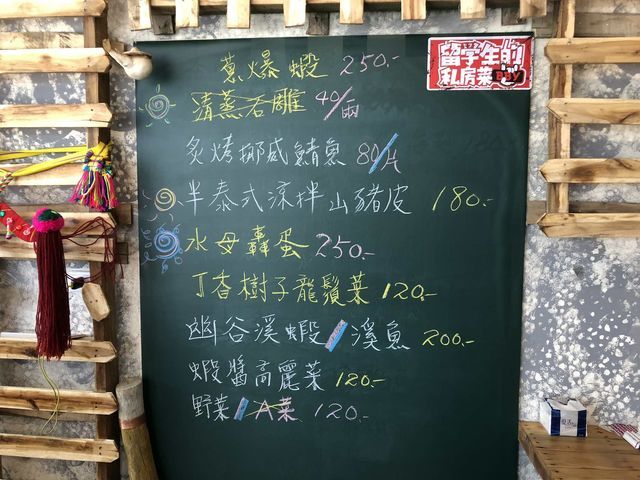 蔥爆蝦 250.-
留學生的
私房菜
清蒸石雕 40/兩
炙烤挪威鯖魚 80/片
半泰式涼拌山豬皮 180.-
水母轟蛋 250.-
丁香樹子龍鬚菜 120.-
幽谷溪蝦/溪魚 200.-
蝦醬高麗菜 120.-
野菜/A菜 120.-